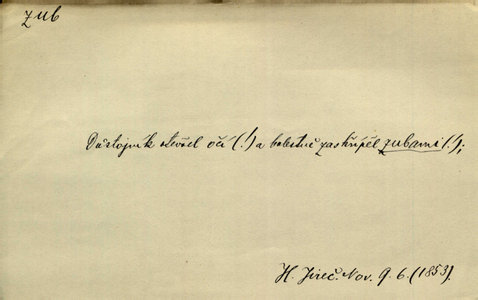 zub
Důstojník otevřel oči (!) a bolestně zaskřípěl zubami (!);
H. Jireč. Nov. 9. 6. (1853).